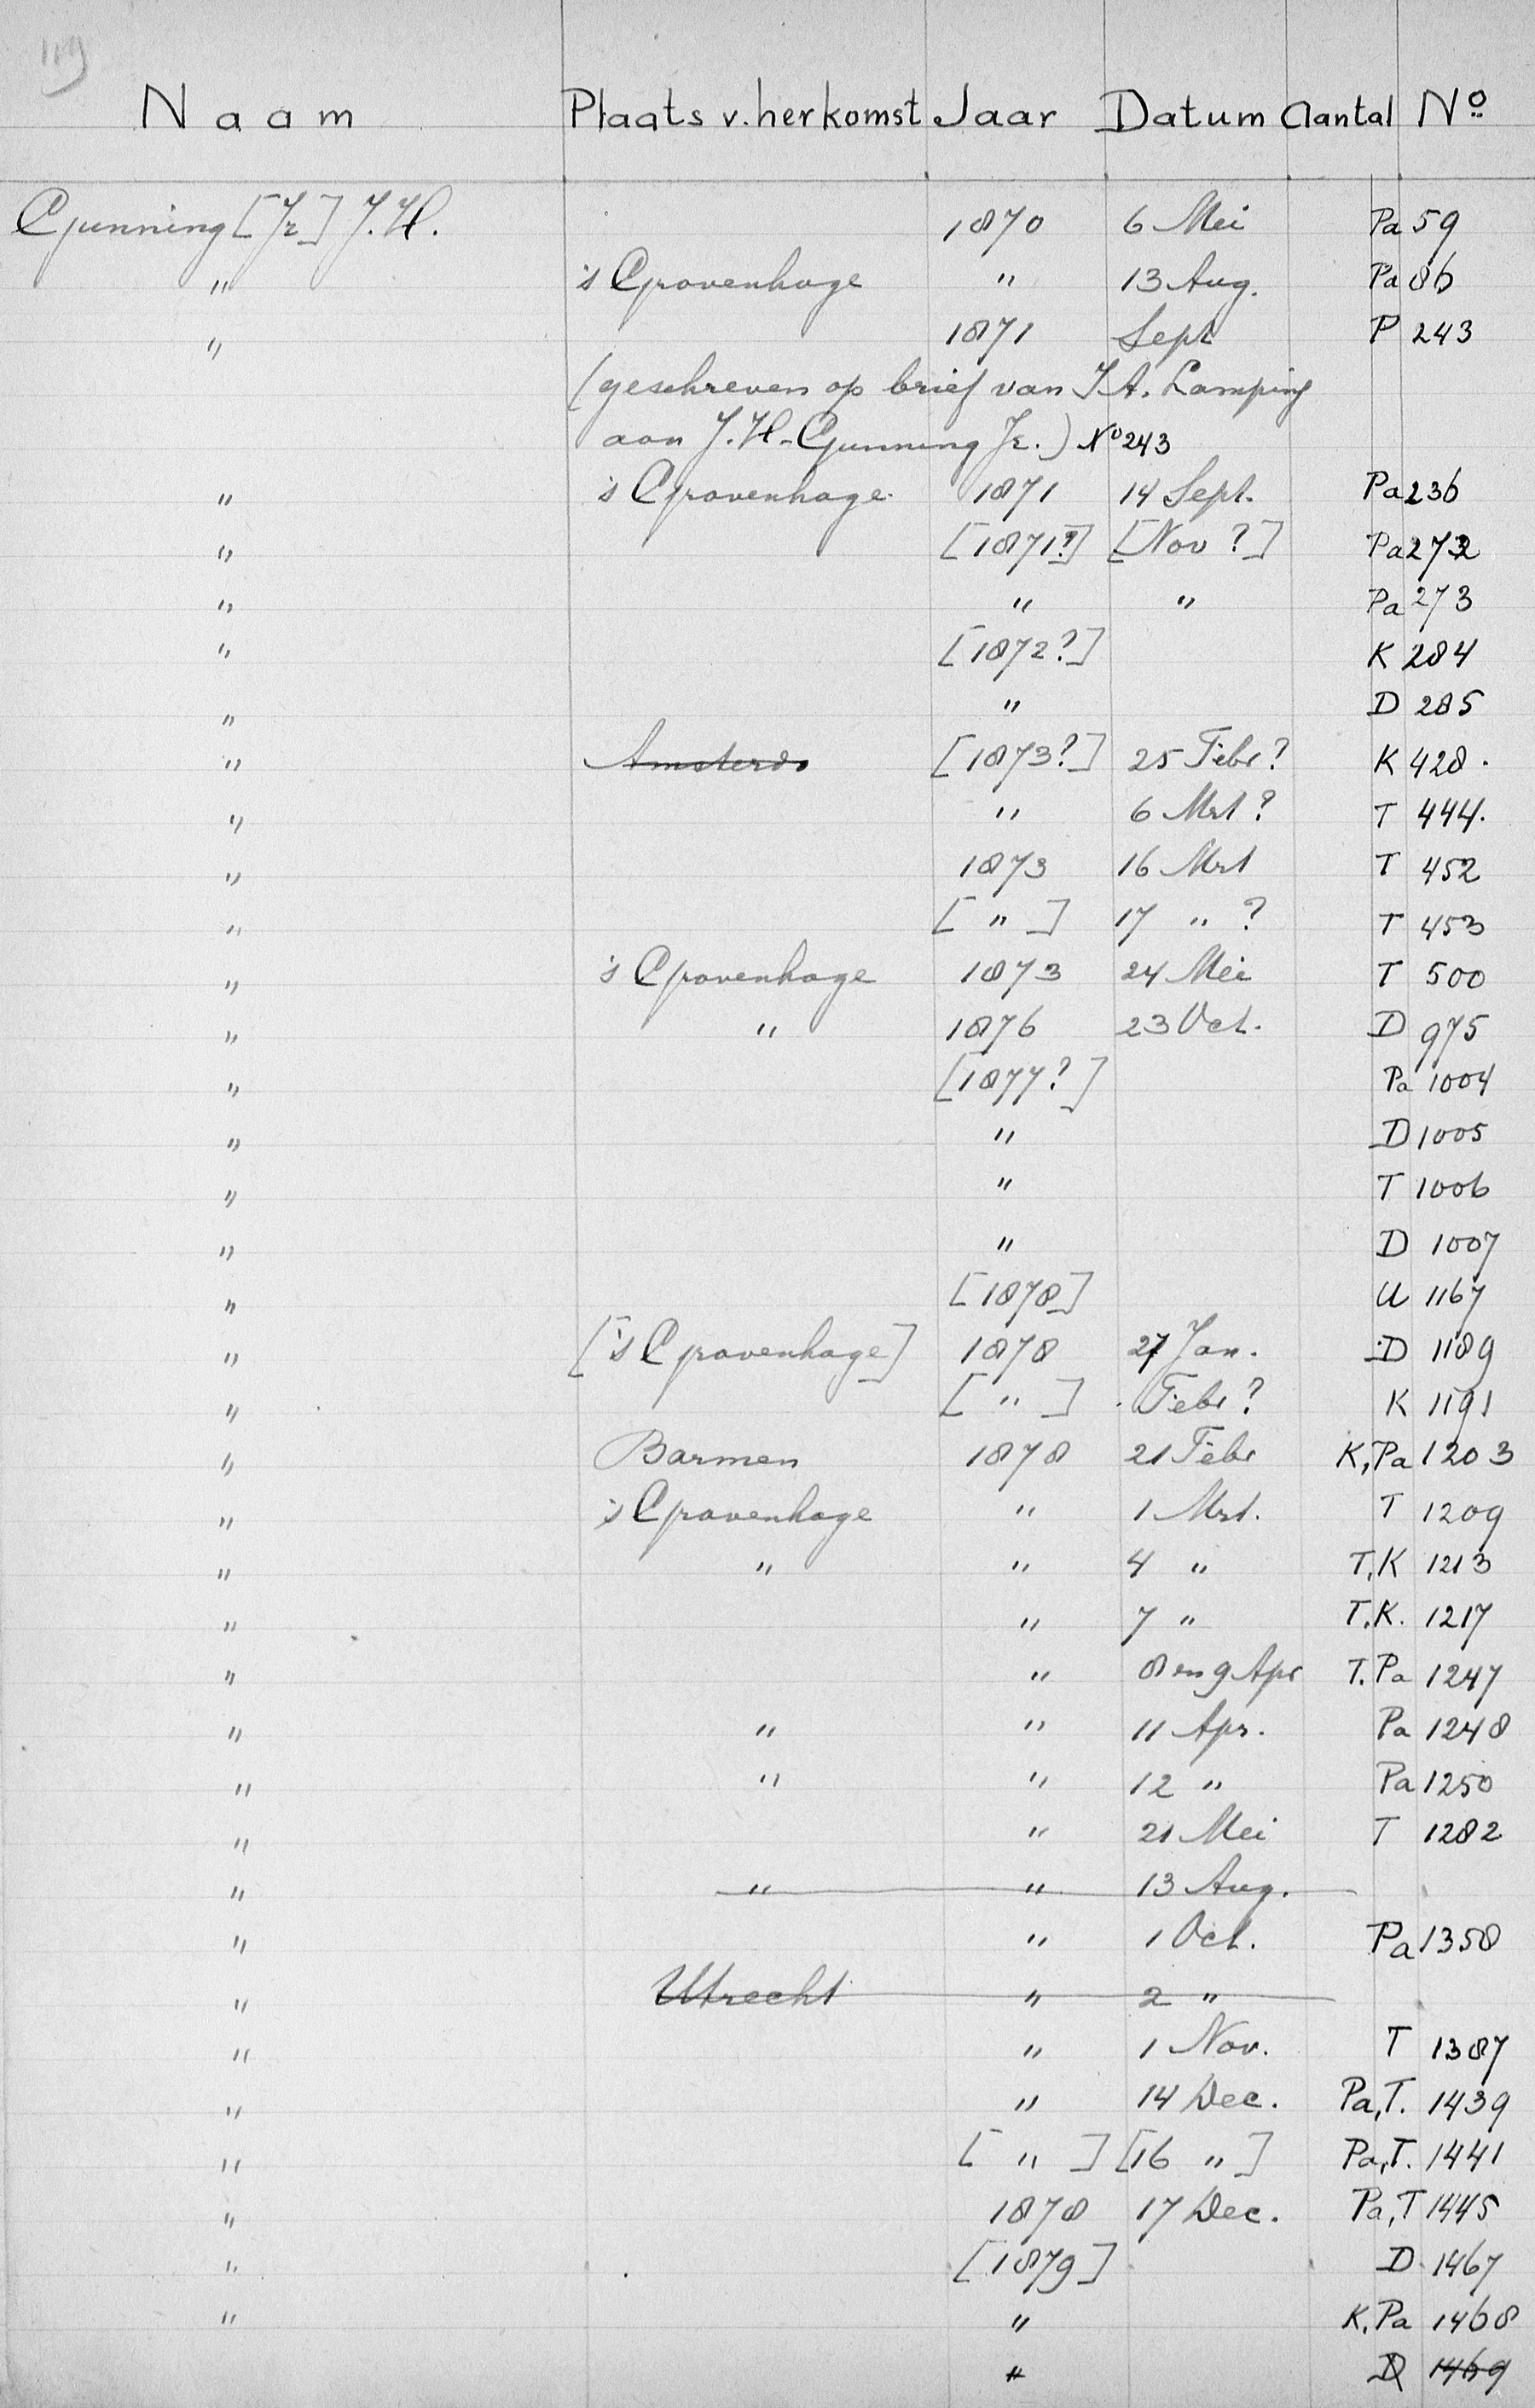 119
Naam Plaats v. herkomst Jaar Datum Aantal Nº
Gunning [Jr] J.H. 1870 6 Mei Pa 59
" 's Gravenhage " 13 Aug. Pa 86
" 1871 Sept P 243
(geschreven op brief van J.A. Lamping
aan J.H. Gunning Jr.) Nº 243
" 's Gravenhage 1871 14 Sept. Pa 236
" [1871?] [Nov ?] Pa 272
" " " Pa 273
" [1872?] K 284
" " D 285
" Amsterd. [1873?] 25 Febr? K 428.
" " 6 Mrt ? T 444.
" 1873 16 Mrt T 452
" [ " ] 17 " ? T 453
" 's Gravenhage 1873 24 Mei T 500
" " 1876 23 Oct. D 975
" [1877?] Pa 1004
" " D 1005
" " T 1006
" " D 1007
" [1878] U 1167
" ['s Gravenhage] 1878 27 Jan. D 1189
" [ " ] Febr? K 1191
" Barmen 1878 21 Febr K, Pa 1203
" 's Gravenhage " 1 Mrt. T 1209
" " " 4 " T, K 1213
" " 7 " T. K. 1217
" " 8 en 9 Apr T. Pa 1247
" " " 11 Apr. Pa 1248
" " " 12 " Pa 1250
" " 21 Mei T 1282
" " " 13 Aug.
" " 1 Oct. Pa 1358
" Utrecht " 2 "
" " 1 Nov. T 1387
" " 14 Dec. Pa, T. 1439
" [ " ] [16 " ] Pa, T. 1441
" 1878 17 Dec. Pa, T 1445
" [1879] D 1467
" " K, Pa 1468
" D 1469